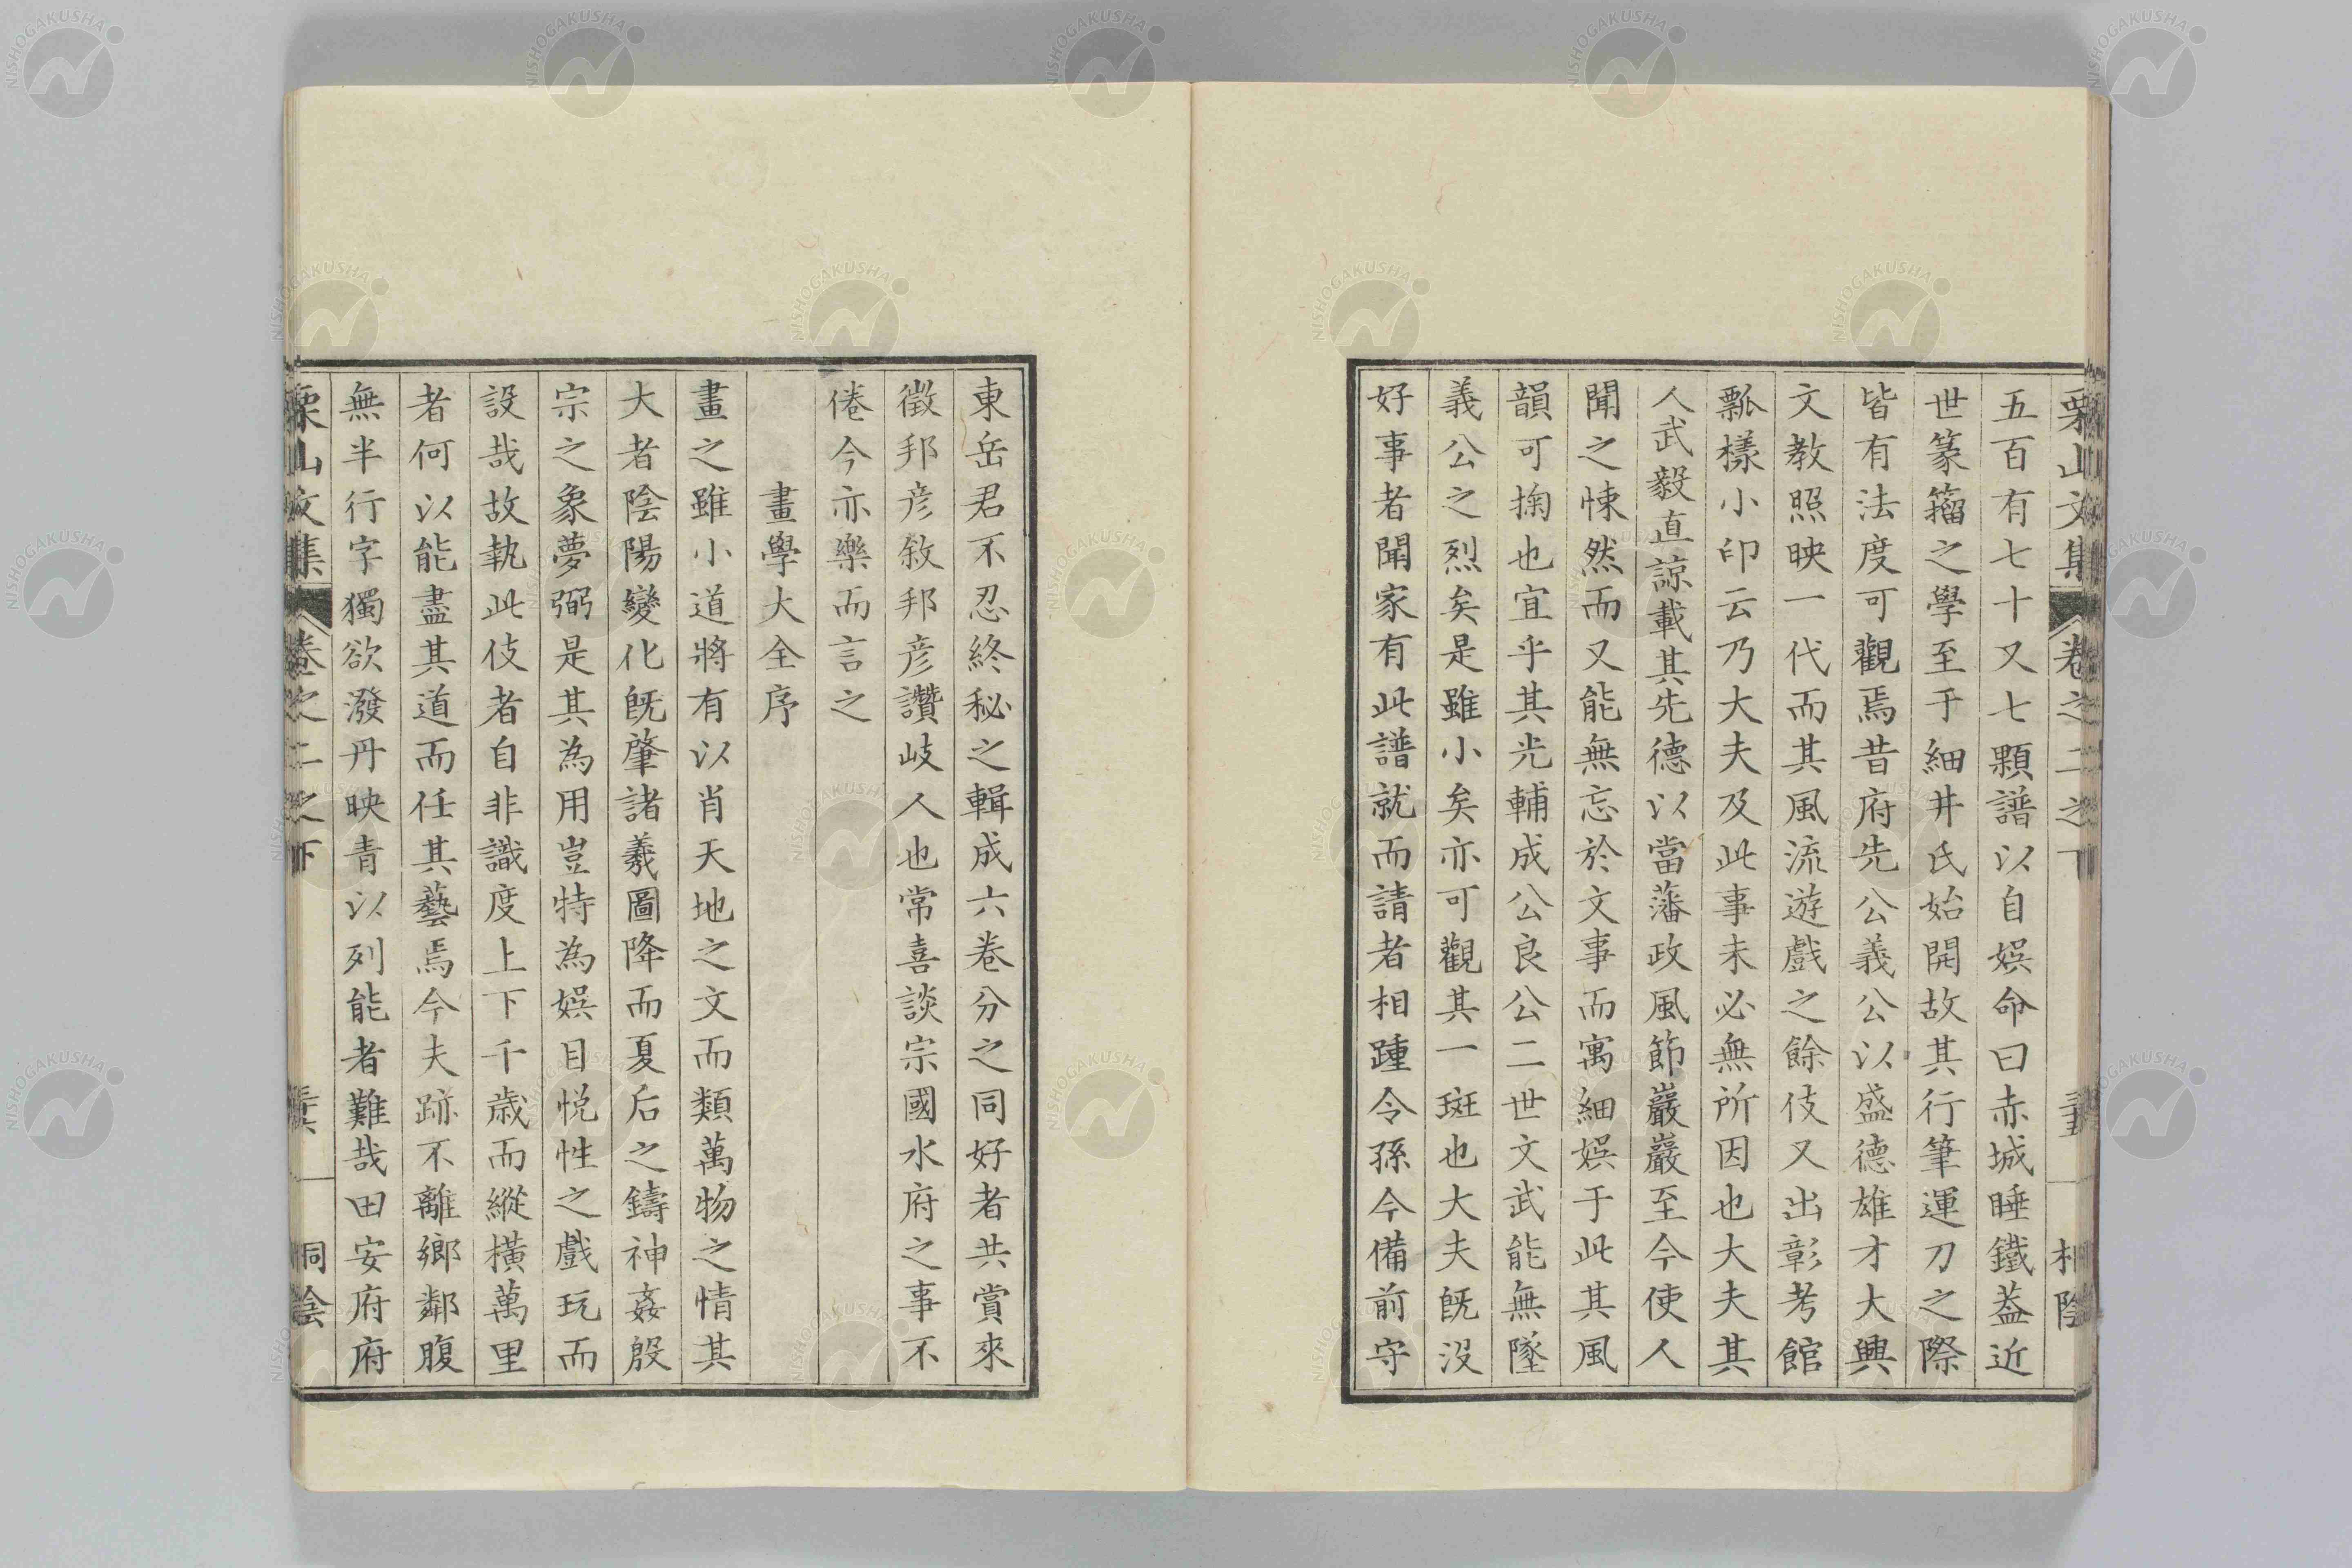 栗山文集 卷之二之下 桐陰
五百有七十又七顆譜以自娯命曰赤城睡鐵葢近
世篆籀之學至于細井氏始開故其行筆運刀之際
皆有法度可觀焉昔府先公義公以盛德雄才大興
文教照映一代而其風流遊戲之餘伎又出彰考館
瓢樣小印云乃大夫及此事未必無所因也大夫其
人武毅直諒載其先德以當藩政風節巖巖至今使人
聞之悚然而又能無忘於文事而寓細娯于此其風
韻可掬也宜乎其光輔成公良公二世文武能無墜
義公之烈矣是雖小矣亦可觀其一斑也大夫旣沒
好事者聞家有此譜就而請者相踵令孫今備前守
東岳君不忍終秘之輯成六卷分之同好者共賞來
徵邦彦敘邦彦讚岐人也常喜談宗國水府之事不
倦今亦樂而言之
畫學大全序
畫之雖小道將有以肖天地之文而類萬物之情其
大者陰陽變化旣肇諸羲圖降而夏后之鑄神姦殷
宗之象夢弼是其為用豈特為娯目悅性之戲玩而
設哉故執此伎者自非識度上下千歳而縱橫萬里
者何以能盡其道而任其藝焉今夫跡不離鄉鄰腹
無半行字獨欲潑丹映青以列能者難哉田安府府
栗山文集 卷之二之下 桐陰
NISHOGAKUSHA